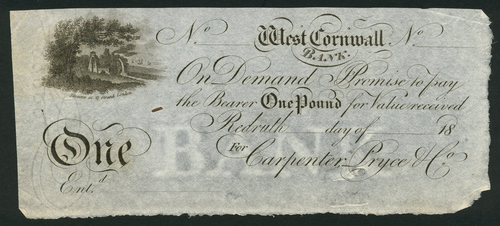 No West Cornwall No
BANK.
On Demand I Promise to pay
the Bearer One Pound for Value received
Redruth day of 18
One
BANK
For Carpenter, Pryce & Co
Ent.d